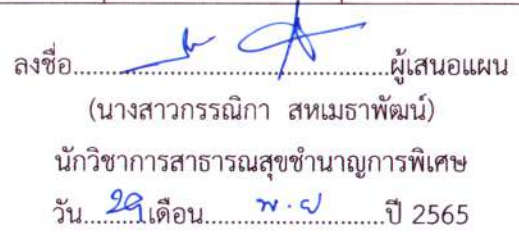 ลงชื่อ.....................................................ผู้เสนอแผน
(นางสาวกรรณิกา สหเมธาพัฒน์)
นักวิชาการสาธารณสุขชำนาญการพิเศษ
วัน...29...เดือน.......พ.ย..............ปี 2565